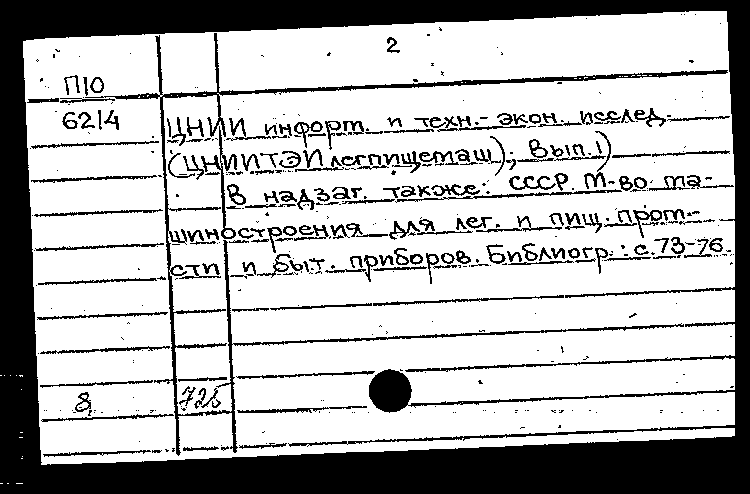 2
П10
62/4
ЦНИИ информ. и техн.-экон. исслед.
(ЦНИИТЭИлегпищемаш); Вып.1)
В надзаг. также: СССР. М-во ма-
шиностроения для лег. и пищ. пром-
сти и быт. приборов. Библиогр.: с.73-76.
8 725